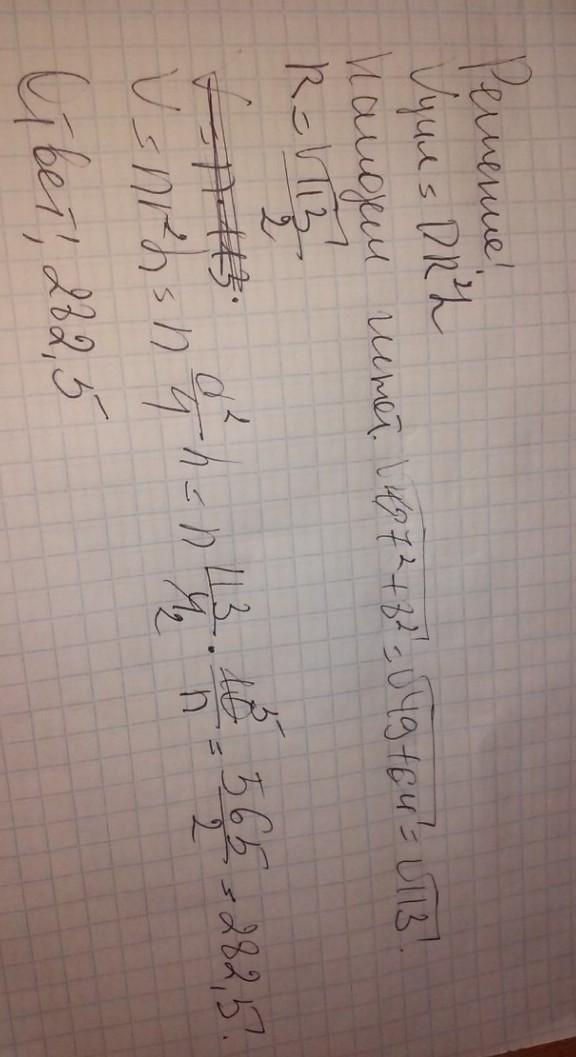 Решение!
Vцил = ПR²h
Найдем гипот. √7²+8² = √49+64 = √113.
R = √113/2
V = пr²h = п d²/4 h = п 113/4 2 · 10 5/п = 565/2 = 282,5.
Ответ; 282,5